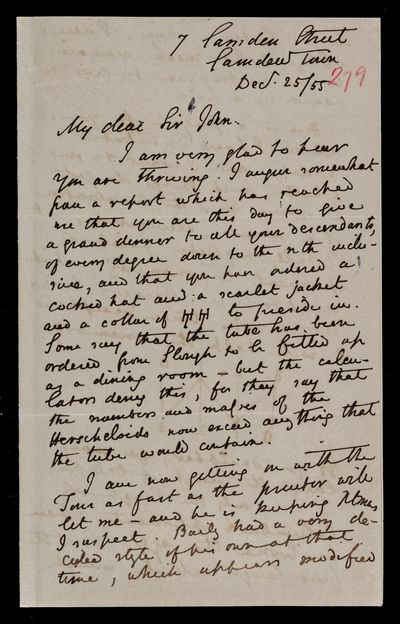 7 Camden Street
Camden Town
Decr. 25/55
279
My dear Sir John.
I am very glad to hear
you are thriving. I augur somewhat
from a report which has reached
me that you are this day to give
a grand dinner to all your descendants,
of every degree down to the nth inclu-
sive, and that you have ordered a
cocked hat and a scarlet jacket
and a collar of HH to preside in.
Some say that the tube has been
ordered from Slough to be fitted up
as a dining room - but the calcu-
lators deny this, for they say that
the numbers and masses of the
Herscheloids now exceed anything that
the tube would contain.
I am now getting on with the
Tour as fast as the printer will
let me - and he is keeping Xtmas
I suspect. Baily had a very de-
cided style of his own at that
time, which appears modified